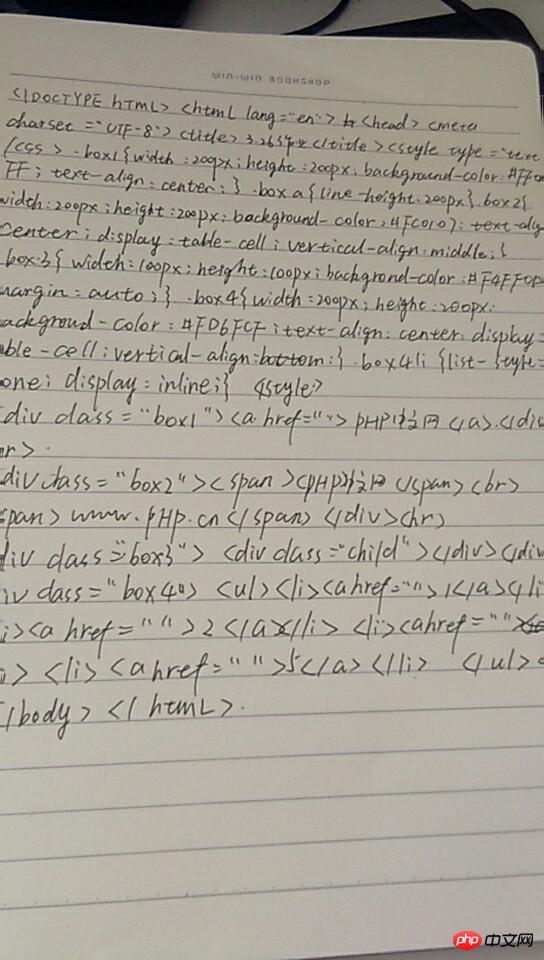 WIN-WIN BOOKSHOP
<!DOCTYPE HTML> <html lang="en"> <head> <meta
charset="UTF-8"> <title> 3.26 </title> <style type="text
/css > .box1{width:200px;height:200px.background-color:#FF
FF; text-align:center;} .box a{line-height:200px}.box2{
width:200px;height:200px;background-color:#FC010);text-alig
center;display:table-cell;vertical-align:middle;{
.box3{width:100px;height:100px;background-color:#F4FF0D
margin:auto;} .box4{width:200px;height:200px.
ackground-color:#FD6FCF;text-align:center.display=
ble-cell;vertical-align:bottom:}.box4li {list-style=
one;display=inline;} <style>
div class="box1"><a href=""> PHP中文网 </a>.</div
r>.
div class="box2"><span><PHP中文网 </span><br>
span> www.PHP.cn</span></div><hr>
div class="box3"> <div class="child"></div></div
iv class="box4"> <ul><li><a href="">1</a></li
i><a href="">2</a></li> <li><a href=""
> <li><a href="">5</a></li> </ul>
/body> </html>.
php 中文网